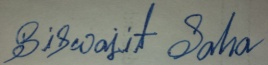 Biswajit Saha